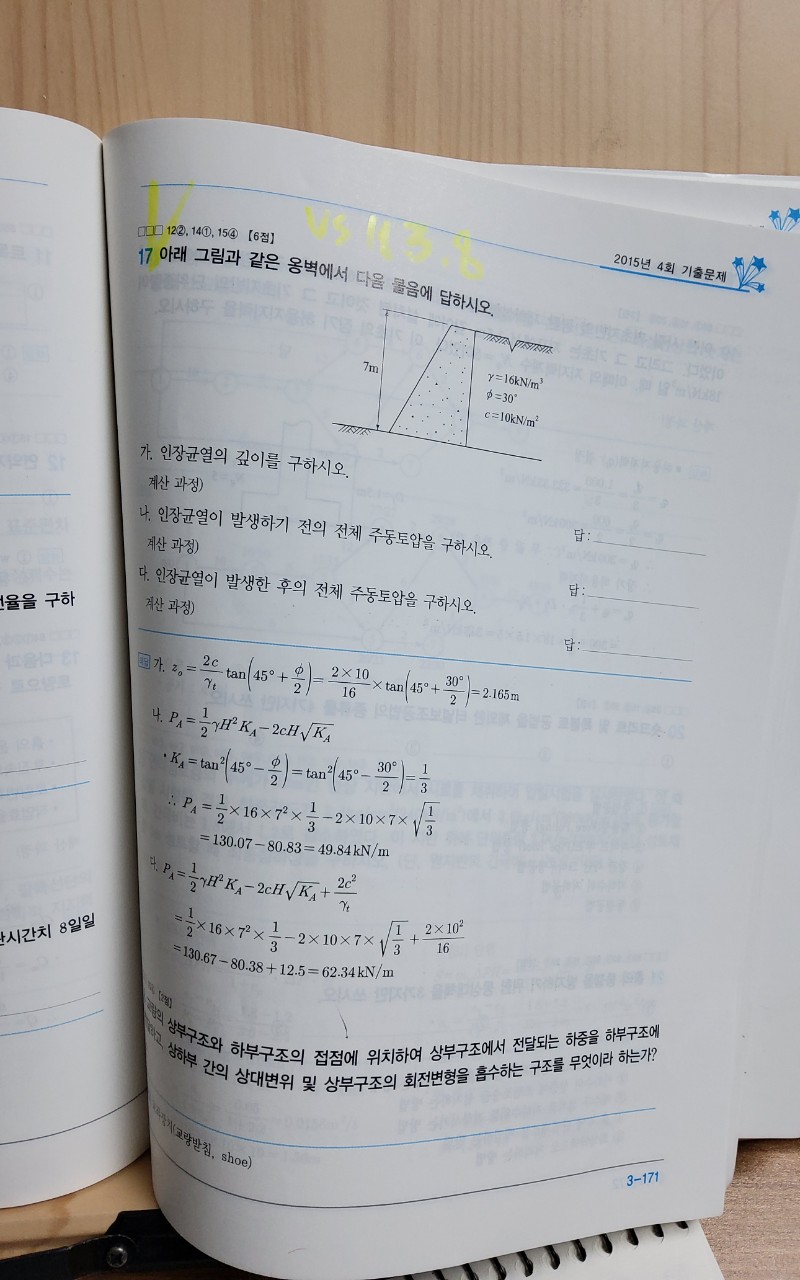 선율을 구하
한시간치 8일일
vs 113.8
□□□ 12②, 14①, 15④ 【6점】
2015년 4회 기출문제
17 아래 그림과 같은 옹벽에서 다음 물음에 답하시오.
7m
γ=16kN/m³
φ=30°
c=10kN/m²
가. 인장균열의 깊이를 구하시오.
계산 과정)
답:
나. 인장균열이 발생하기 전의 전체 주동토압을 구하시오.
계산 과정)
답:
다. 인장균열이 발생한 후의 전체 주동토압을 구하시오.
계산 과정)
답:
해답 가. z₀ = 2c/γₜ tan(45°+φ/2) = 2×10/16 × tan(45°+30°/2) = 2.165m
나. P_A = 1/2 γH²K_A − 2cH√K_A
· K_A = tan²(45°−φ/2) = tan²(45°−30°/2) = 1/3
∴ P_A = 1/2 × 16 × 7² × 1/3 − 2 × 10 × 7 × √(1/3)
= 130.07 − 80.83 = 49.84 kN/m
다. P_A = 1/2 γH²K_A − 2cH√K_A + 2c²/γₜ
= 1/2 × 16 × 7² × 1/3 − 2 × 10 × 7 × √(1/3) + 2×10²/16
= 130.67 − 80.38 + 12.5 = 62.34 kN/m
상부구조와 하부구조의 접점에 위치하여 상부구조에서 전달되는 하중을 하부구조에
상하부 간의 상대변위 및 상부구조의 회전변형을 흡수하는 구조를 무엇이라 하는가?
(교량받침, shoe)
3-171